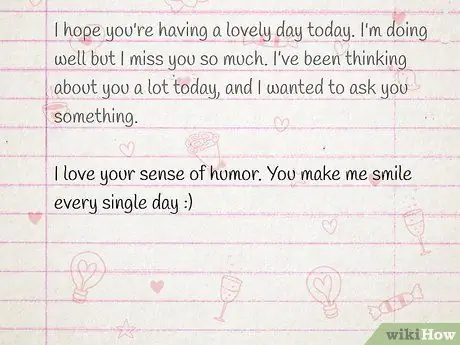 I hope you're having a lovely day today. I'm doing
well but I miss you so much. I've been thinking
about you a lot today, and I wanted to ask you
something.
I love your sense of humor. You make me smile
every single day :)
wikiHow